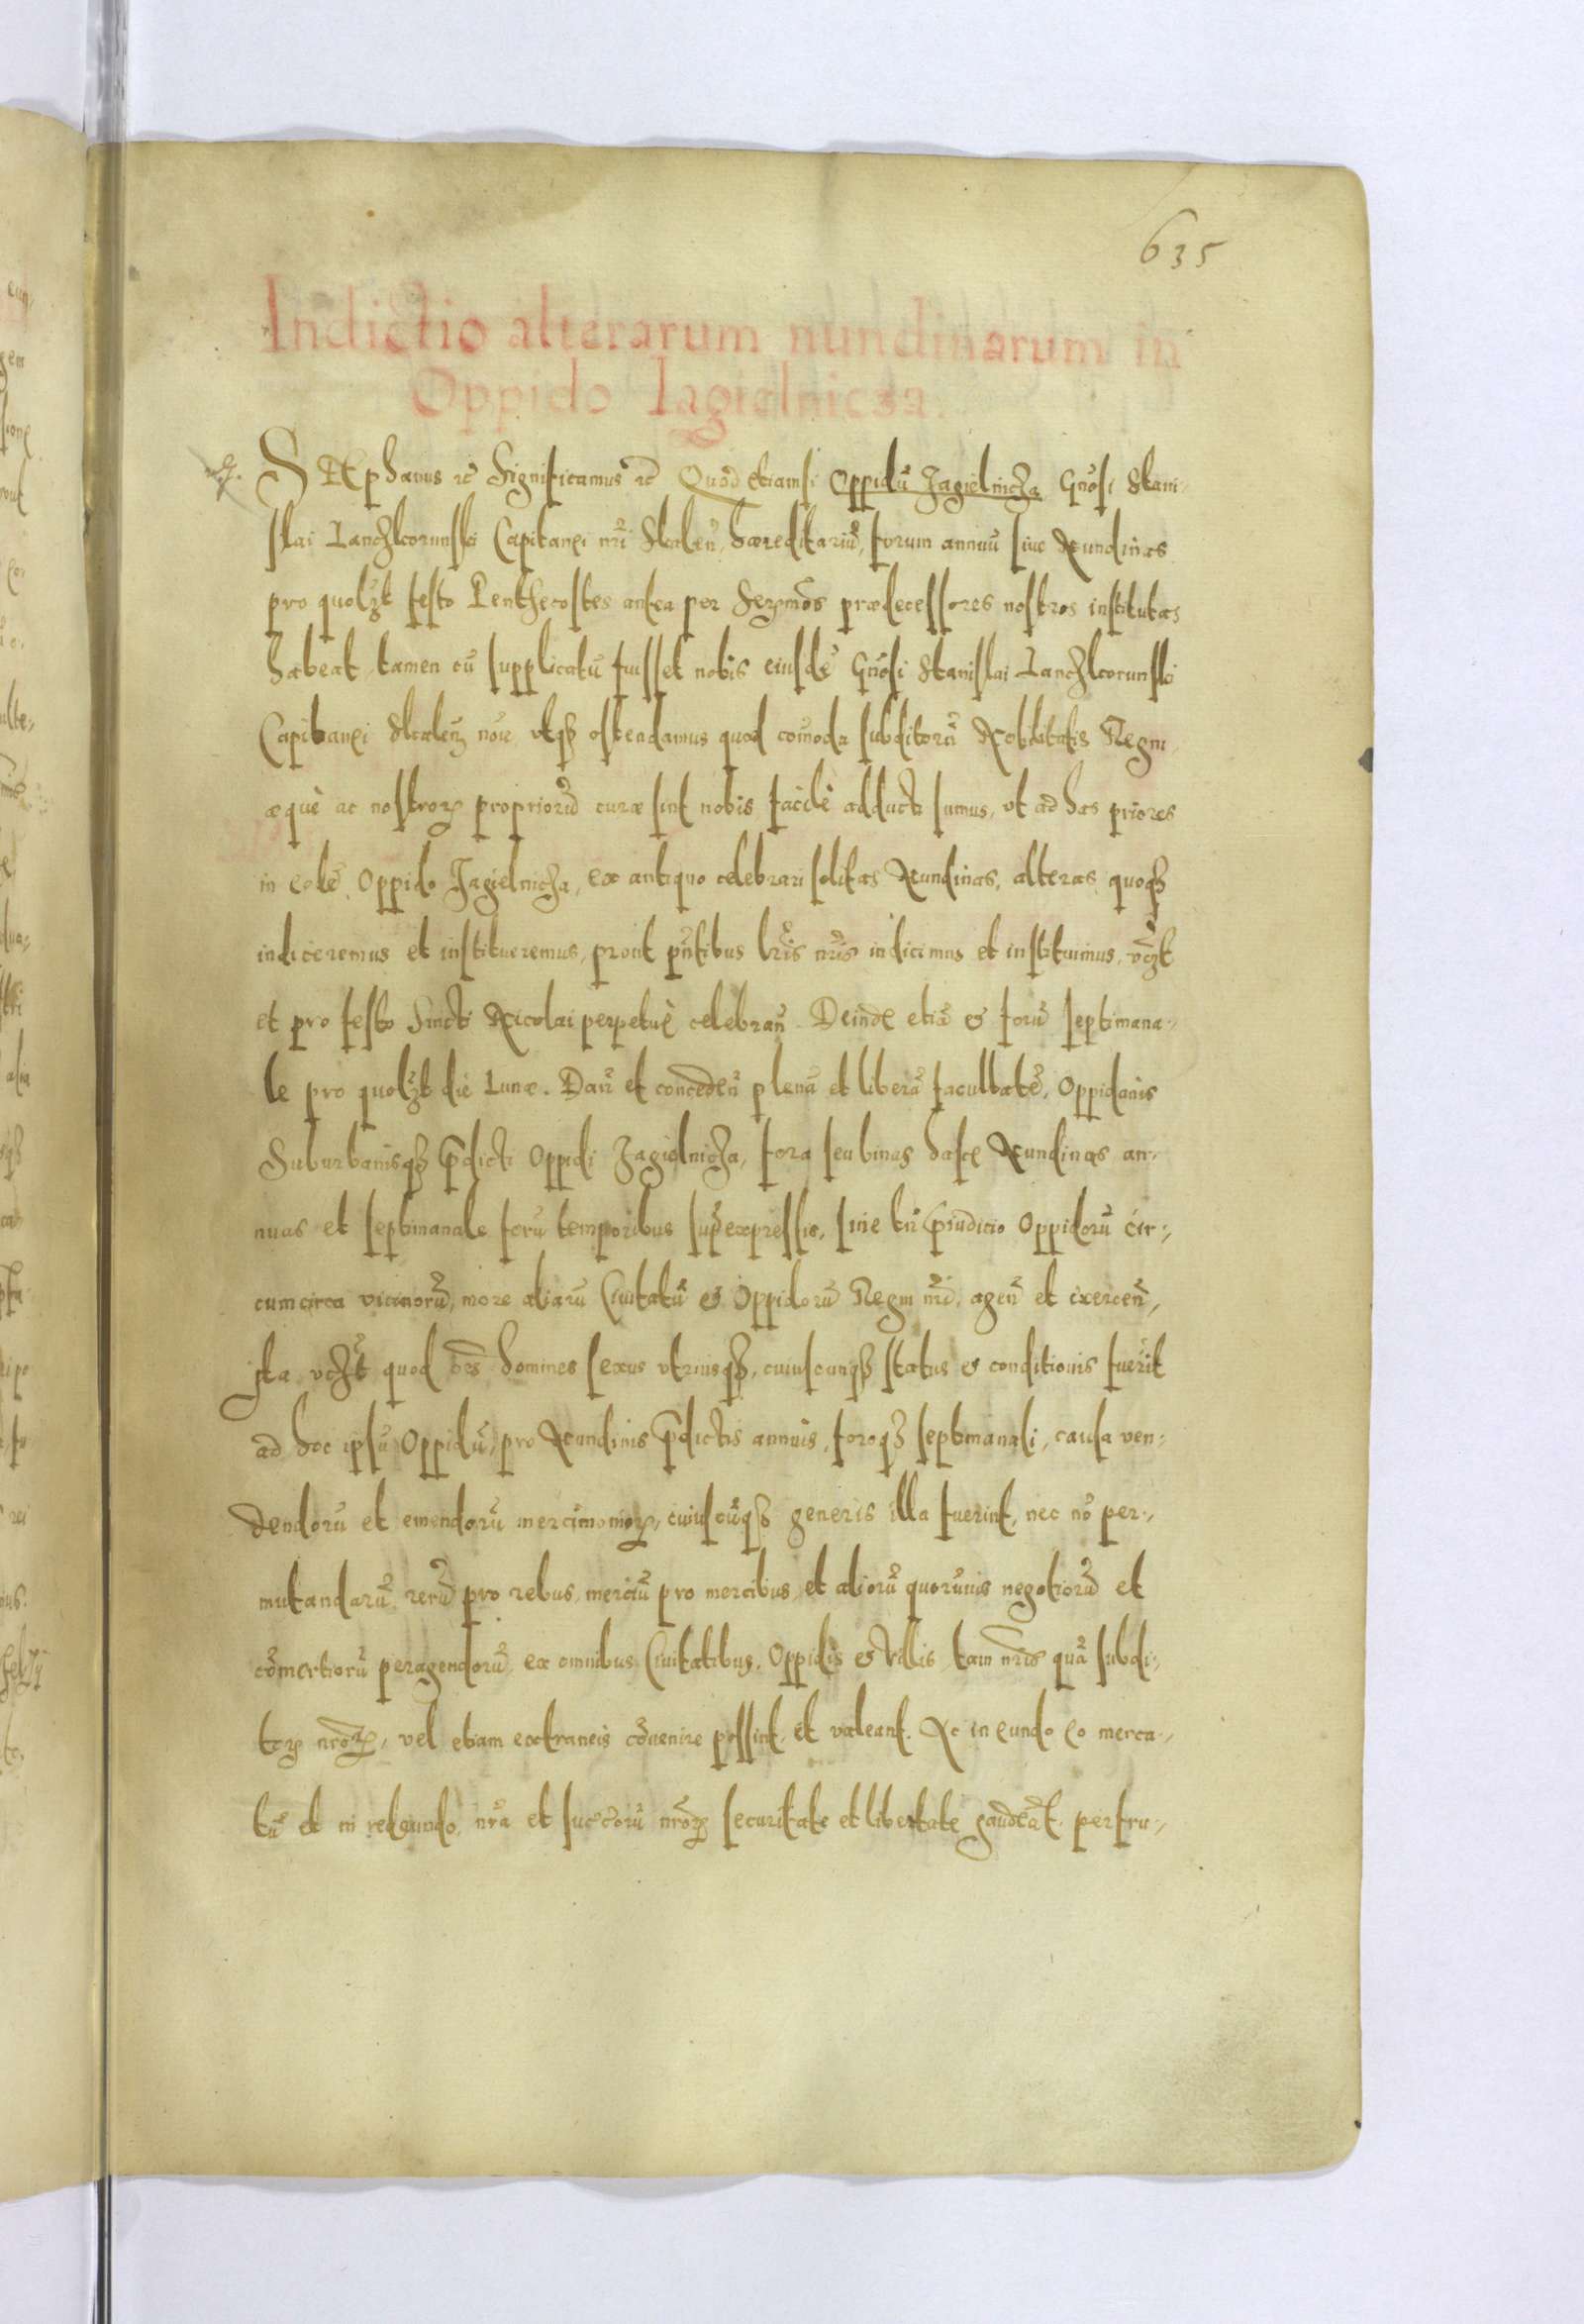 635
Indictio alterarum nundinarum in
Oppido Iagielnicza.
STEphanus rc̃ Significamus rc̃ Quod etiamsi Oppidū Jagielnicza Gn̄osi Stani-
slai Lanczkorunski Capitanei nr̄i Skalen̄, hæreditariū, forum annuū siue Nundinas
pro quolƷt festo Penthecostes antea per Serƺmos prædecessores nostros institutas
habeat, tamen cū supplicatū fuisset nobis eiusdē Gn̄osi Stanislai Lanczkorunski
Capitanei Skalen̄ noīe, vtqȝ ostendamus quod com̄oda subditorū Nobilitatis Regni
æquè ac nostroꝝ propriorū curæ sint nobis facilè adducti sumus, vt ad has priores
in eodē Oppido Jagielnicza, ex antiquo celebrari solitas Nundinas, alteras quoqȝ
indiceremus et institueremus, prout pn̄tibus lr̄is nr̄is indicimus et instituimus, vczt
et pro festo Sancti Nicolai perpetuè celebran̄. Deinde etiā & forū septimana-
le pro quolƷt die Lunæ. Dan̄ et conceden̄ plenā et liberā facultatē, Oppidanis
Suburbanisqȝ p̄dicti Oppidi Jagielnicza, fora seu binas hasce Nundinas an-
nuas et septimanale forū temporibus sup̄expressis, sine tn̄ p̄iudicio Oppidorū cir-
cumcirca vicinorū, more aliarū Ciuitatū & Oppidorū Regni nr̄i, agen̄ et exercen̄,
ita vczt quod oēs homines sexus vtriusqȝ, cuiuscunqȝ status & conditionis fuerit
ad hoc ipsū Oppidū, pro Nundinis p̄dictis annuis, foroqȝ septimanali, causa ven-
dendorū et emendorū mercimonioꝝ, cuiuscūqȝ generis illa fuerint, nec nō per-
mutandarū rerū pro rebus, merciū pro mercibus, et aliorū quorūuis negotiorū et
cōmertiorū peragendorū, ex omnibus Ciuitatibus, Oppidis & Villis, tam nr̄is quā subdi-
toꝝ nr̄oꝝ, vel etiam extraneis cōuenire possint, et valeant. Ac in eundo eo merca-
tū et in redeundo, nr̄a et succ̄orū nr̄oꝝ securitate et libertate gaudeāt, perfru-